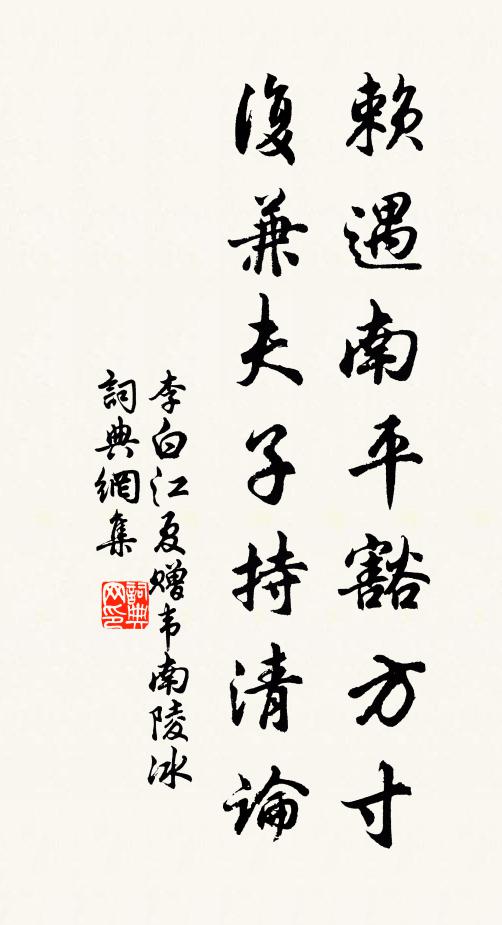 賴遇南平豁方寸
復兼夫子持清論
李白江夏贈韦南陵冰
詞典網集
詞典网印